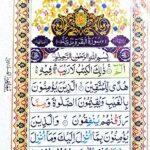 بِسْمِ اللّٰهِ الرَّحْمٰنِ الرَّحِيْمِ
الٓمّٓ ذٰلِكَ الْكِتٰبُ لَا رَيْبَ فِيْهِ
هُدًى لِّلْمُتَّقِيْنَ الَّذِيْنَ يُؤْمِنُوْنَ
بِالْغَيْبِ وَيُقِيْمُوْنَ الصَّلٰوةَ وَمِمَّا
رَزَقْنٰهُمْ يُنْفِقُوْنَ وَالَّذِيْنَ
يُؤْمِنُوْنَ بِمَآ اُنْزِلَ اِلَيْكَ وَمَآ اُنْزِلَ